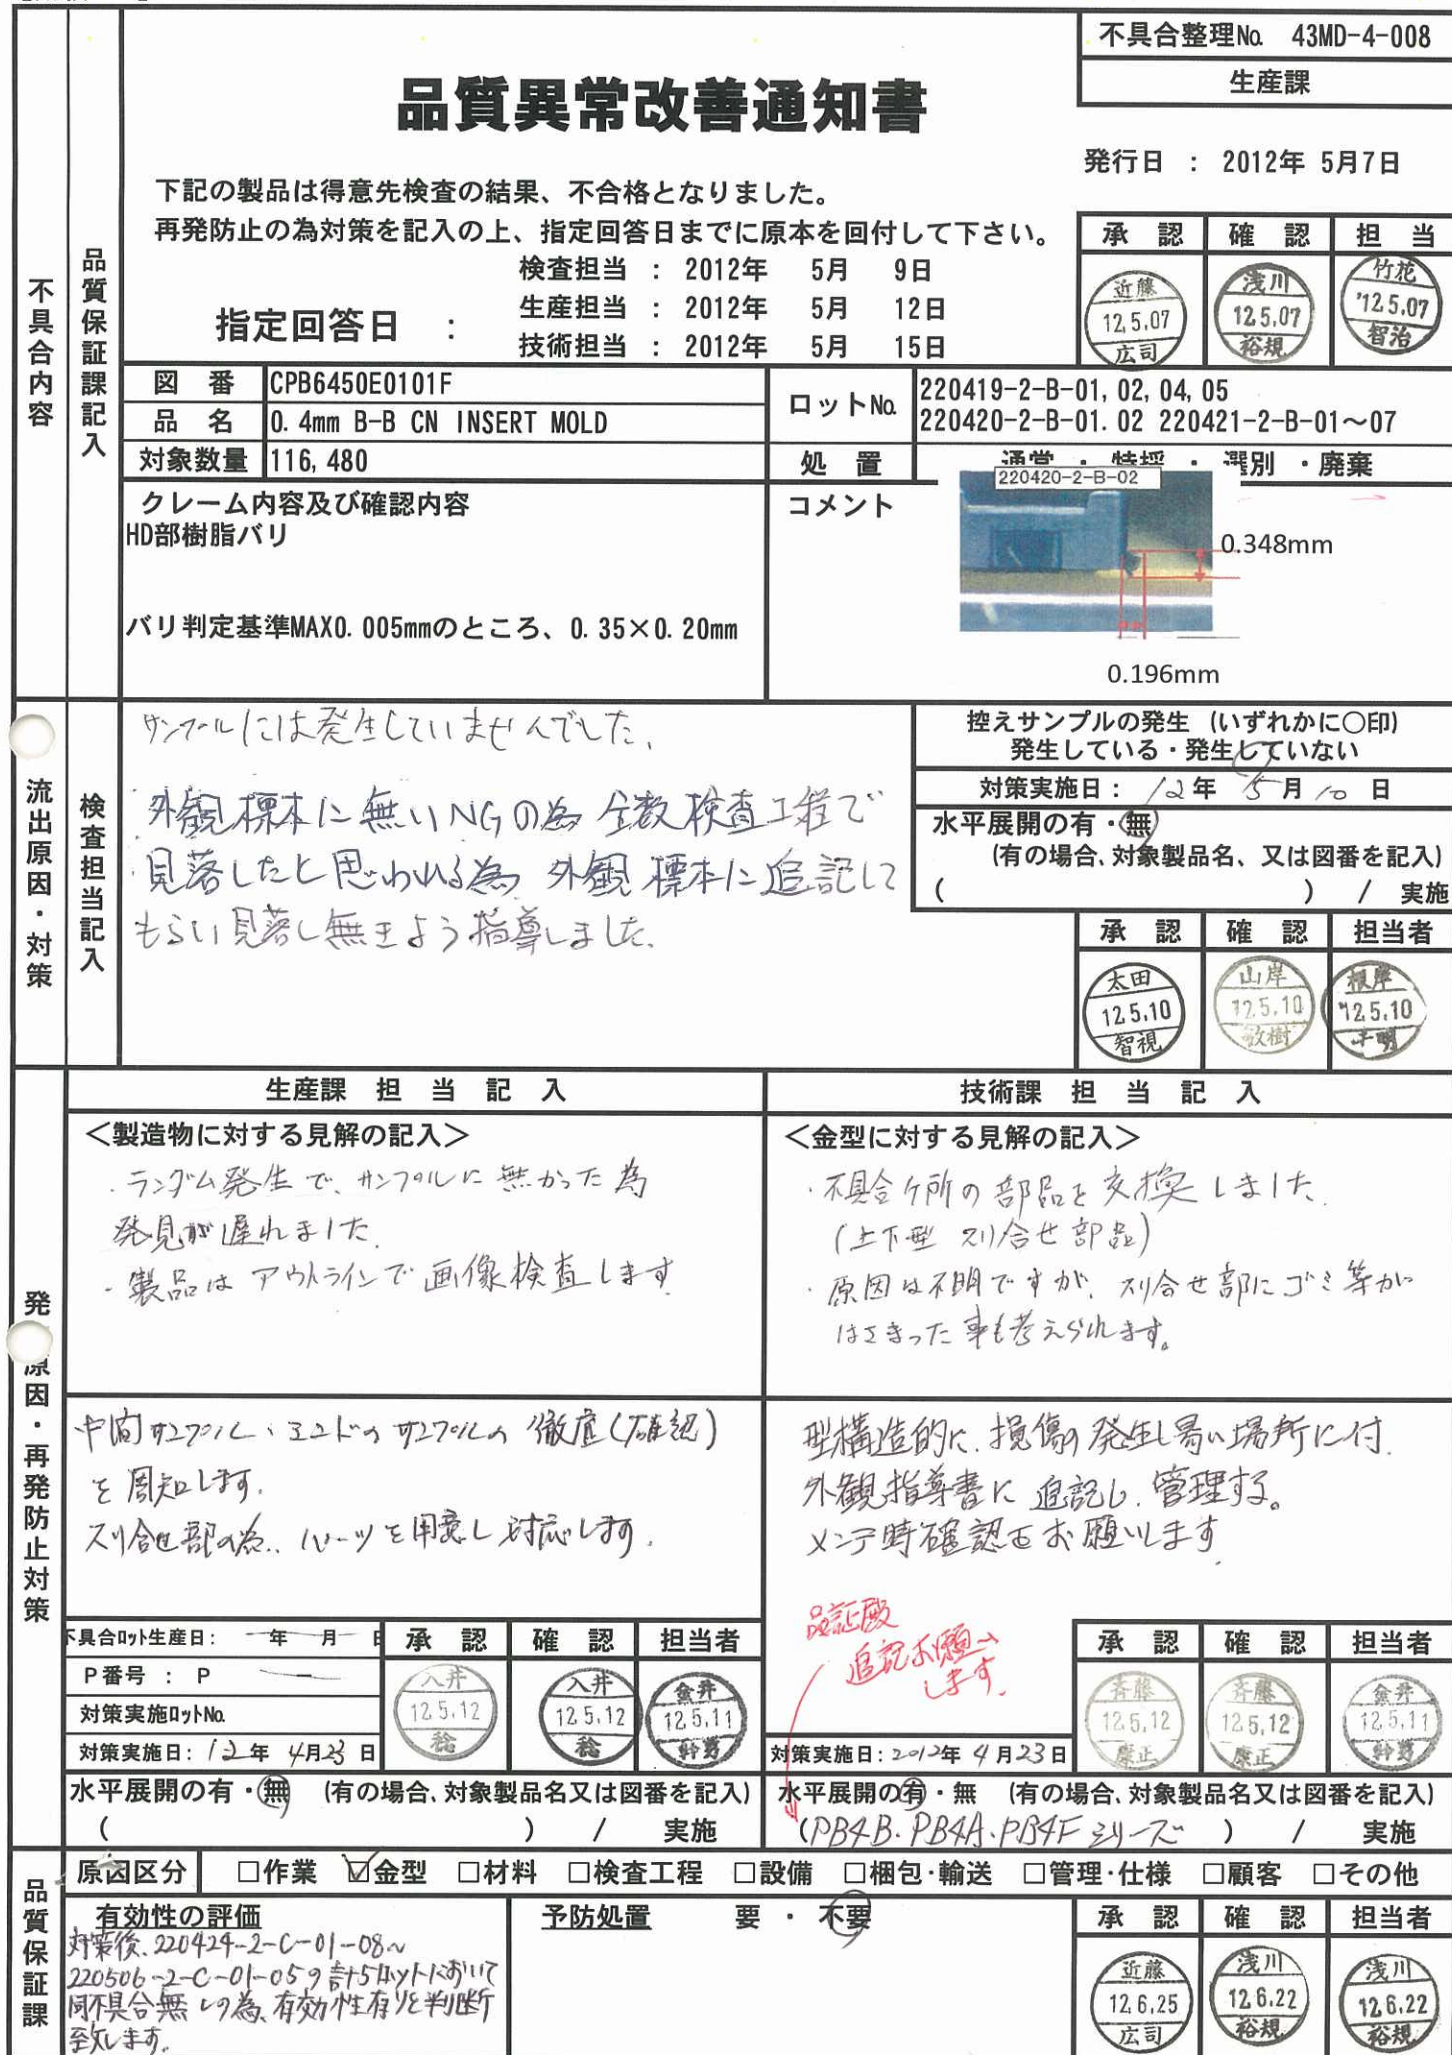 不具合整理No. 43MD-4-008
生産課
品質異常改善通知書
発行日 : 2012年 5月7日
下記の製品は得意先検査の結果、不合格となりました。
再発防止の為対策を記入の上、指定回答日までに原本を回付して下さい。
指定回答日 :
検査担当 : 2012年 5月 9日
生産担当 : 2012年 5月 12日
技術担当 : 2012年 5月 15日
承認 確認 担当
近藤 12.5.07 広司
浅川 12.5.07 裕規
竹花 '12.5.07 智治
不具合内容
品質保証課記入
図番 CPB6450E0101F
品名 0.4mm B-B CN INSERT MOLD
対象数量 116,480
ロットNo. 220419-2-B-01, 02, 04, 05
220420-2-B-01. 02 220421-2-B-01～07
処置 通常 ・ 特採 ・ 選別 ・廃棄
クレーム内容及び確認内容
HD部樹脂バリ
バリ判定基準MAX0.005mmのところ、0.35×0.20mm
コメント
220420-2-B-02
0.348mm
0.196mm
流出原因・対策
検査担当記入
サンプルには発生していませんでした、
外観標本に無いNGの為全数検査工程で
見落したと思われる為 外観標本に追記して
もらい見落し無きよう指導しました、
控えサンプルの発生 (いずれかに〇印)
発生している・発生していない
対策実施日: 12年 5月 10日
水平展開の有・無
(有の場合、対象製品名、又は図番を記入)
( ) / 実施
承認 確認 担当者
太田 12.5.10 智視
山岸 12.5.10 敏樹
根岸 '12.5.10
発 原因・再発防止対策
生産課 担当記入
＜製造物に対する見解の記入＞
・ランダム発生で、サンプルに無かった為
発見が遅れました.
・製品はアウトラインで画像検査します.
中間サンプル、エンドのサンプルの徹底(確認)
を周知します.
スリ合せ部の為、パーツを用意し対応します.
技術課 担当記入
＜金型に対する見解の記入＞
・不具合ケ所の部品を交換しました.
(上下型 スリ合せ部品)
・原因は不明ですが、スリ合せ部にゴミ等が
はさまった事も考えられます。
型構造的に、損傷の発生し易い場所に付.
外観指導書に追記し、管理する。
メンテ時確認をお願いします.
品証殿
追記お願い
します.
不具合ロット生産日: 年 月 日
P番号 : P －
対策実施ロットNo.
対策実施日: 12年 4月23日
承認 確認 担当者
入井 12.5.12 稔
入井 12.5.12 稔
金井 12.5.11
対策実施日: 2012年 4月23日
承認 確認 担当者
斉藤 12.5.12 康正
斉藤 12.5.12 康正
金井 12.5.11
水平展開の有・無 (有の場合、対象製品名又は図番を記入)
( ) / 実施
水平展開の有・無 (有の場合、対象製品名又は図番を記入)
(PB4B.PB4A.PB4Fシリーズ ) / 実施
品質保証課
原因区分 □作業 ☑金型 □材料 □検査工程 □設備 □梱包・輸送 □管理・仕様 □顧客 □その他
有効性の評価
対策後、220424-2-C-01-08～
220506-2-C-01-05の計5ロットにおいて
同不具合無しの為、有効性有りと判断
致します.
予防処置 要 ・ 不要
承認 確認 担当者
近藤 12.6.25 広司
浅川 12.6.22 裕規
浅川 12.6.22 裕規